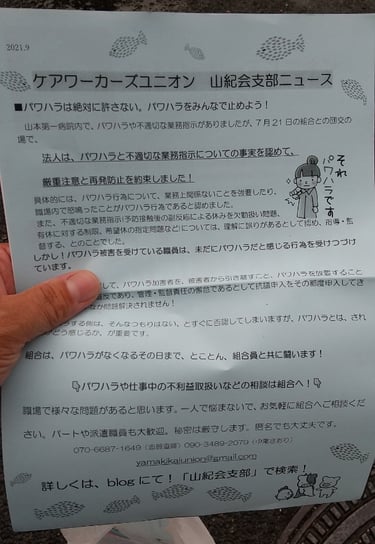 2021.9
ケアワーカーズユニオン 山紀会支部ニュース
■パワハラは絶対に許さない。パワハラをみんなで止めよう！
山本第一病院内で、パワハラや不適切な業務指示がありましたが、7月21日の組合との団交の
場で、
法人は、パワハラと不適切な業務指示についての事実を認めて、
厳重注意と再発防止を約束しました！
それ
パワハラです
具体的には、パワハラ行為について、業務上関係ないことを強要したり、
職場内で怒鳴ったことがパワハラ行為であると認めました。
また、不適切な業務指示(予防接種後の副反応による休みを欠勤扱い問題、
有休に対する制限、希望休の指定問題などについては、理解に誤りがあるとして認め、指導・監
督する、とのことでした。
しかし！パワハラ被害を受けている職員は、未だにパワハラだと感じる行為を受けつづけ
ています。
して、パワハラ加害者を、被害者から引き離すこと、パワハラを放置すること
違反であり、管理・監督責任の懈怠であるとして抗議申入をその都度申入してき
問題解決されません！
する側は、そんなつもりはない、とすぐに否認してしまいますが、パワハラとは、され
どう感じるか、が重要です。
組合は、パワハラがなくなるその日まで、とことん、組合員と共に闘います！
パワハラや仕事中の不利益取扱いなどの相談は組合へ！
職場で様々な問題があると思います。一人で悩まないで、お気軽に組合へご相談くだ
さい。パートや派遣職員も大歓迎。秘密は厳守します。匿名でも大丈夫です。
070-6687-1649 090-3489-2079
yamakikaiunion@gmail.com
詳しくは、blogにて！「山紀会支部」で検索！